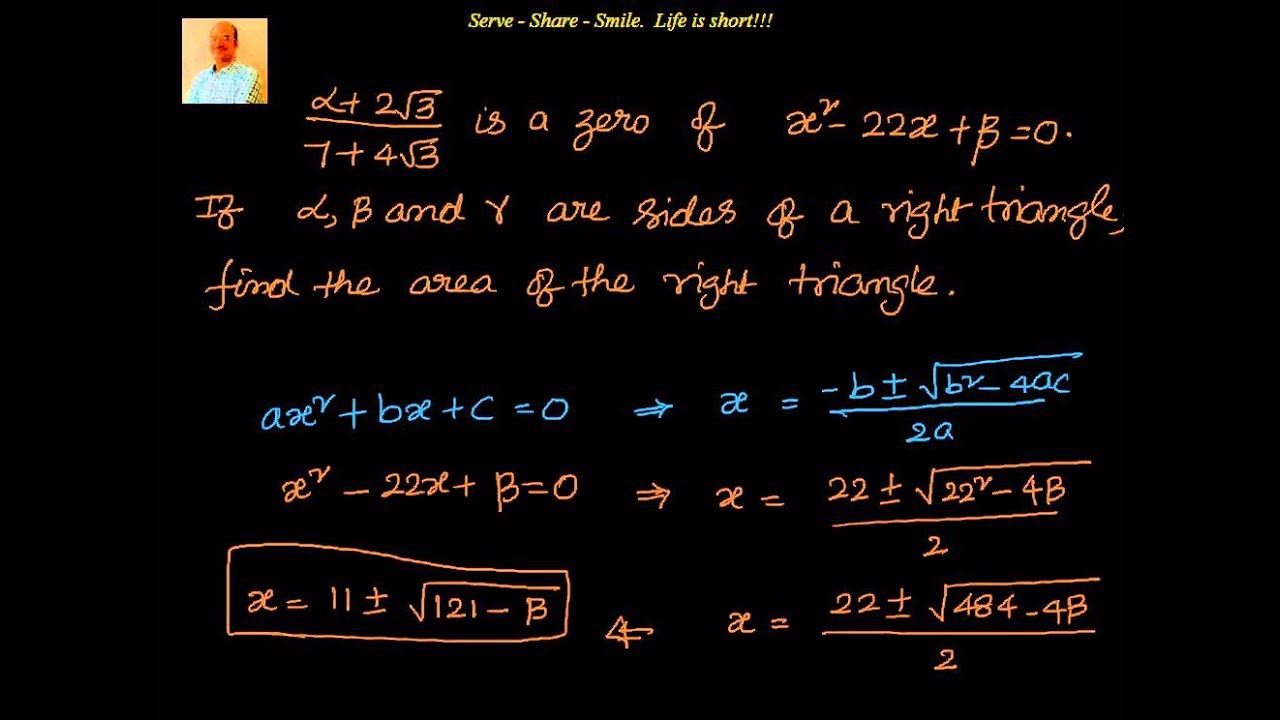 Serve - Share - Smile. Life is short!!!
(α + 2√3)/(7 + 4√3) is a zero of x² - 22x + β = 0.
If α, β and γ are sides of a right triangle,
find the area of the right triangle.
ax² + bx + c = 0 ⇒ x = (-b ± √(b² - 4ac))/2a
x² - 22x + β = 0 ⇒ x = (22 ± √(22² - 4β))/2
x = 11 ± √(121 - β) ⇐ x = (22 ± √(484 - 4β))/2